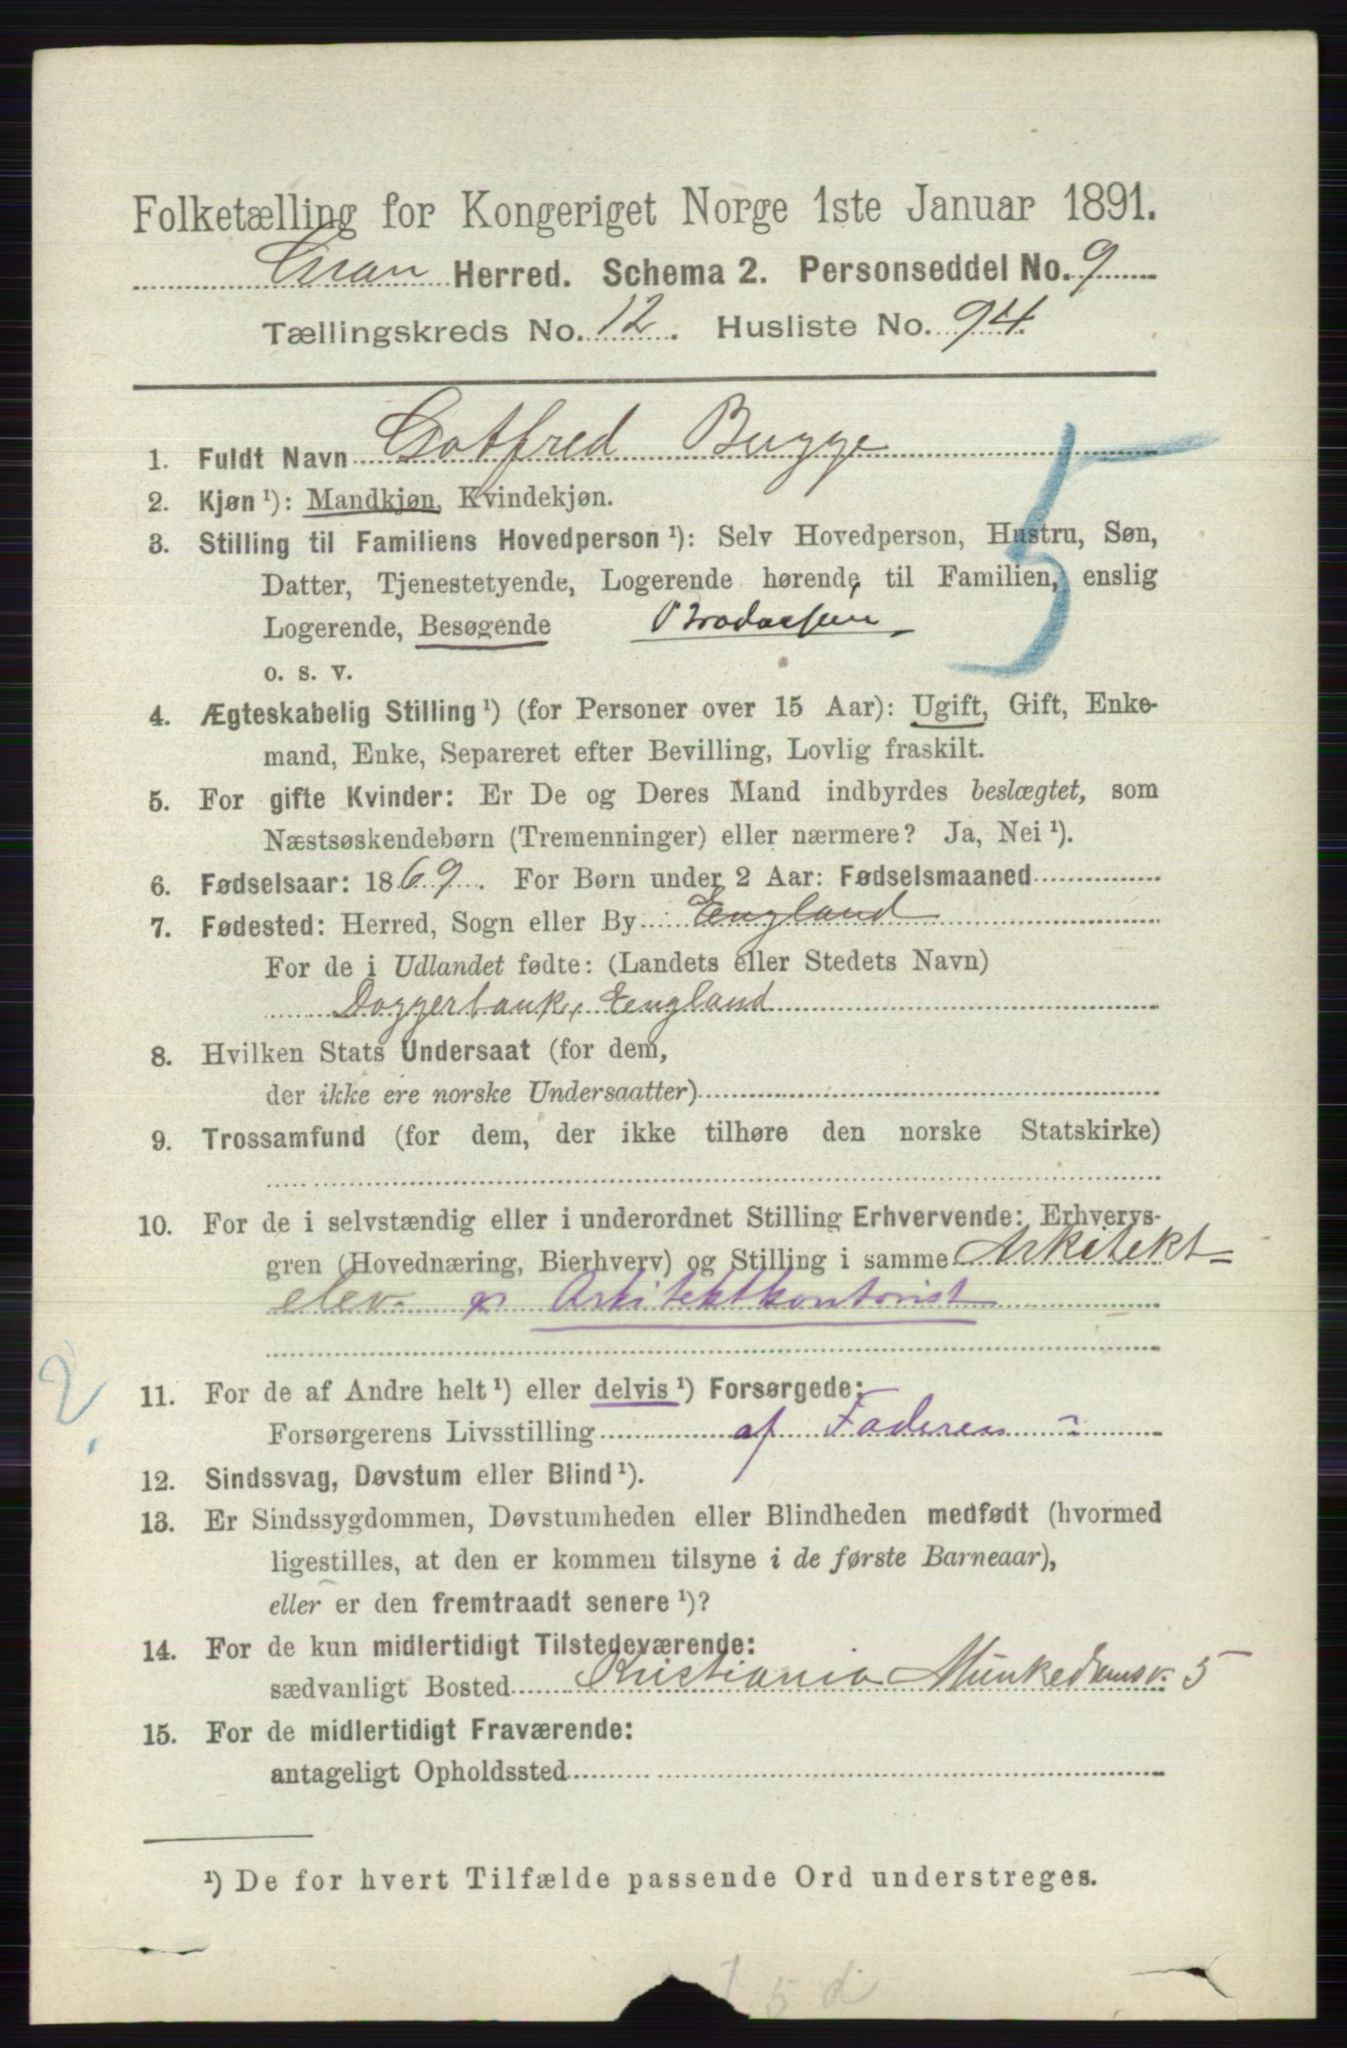 Folketælling for Kongeriget Norge 1ste Januar 1891.
Gran Herred. Schema 2. Personseddel No. 9
Tællingskreds No. 12. Husliste No. 94.
1. Fuldt Navn Gotfred Bugge
2. Kjøn ¹): Mandkjøn, Kvindekjøn.
5
3. Stilling til Familiens Hovedperson ¹): Selv Hovedperson, Hustru, Søn,
Datter, Tjenestetyende, Logerende hørende til Familien, enslig
Logerende, Besøgende Brodersøn
o. s. v.
4. Ægteskabelig Stilling ¹) (for Personer over 15 Aar): Ugift, Gift, Enke-
mand, Enke, Separeret efter Bevilling, Lovlig fraskilt.
5. For gifte Kvinder: Er De og Deres Mand indbyrdes beslægtet, som
Næstsøskendebørn (Tremenninger) eller nærmere? Ja, Nei ¹).
6. Fødselsaar: 1869. For Børn under 2 Aar: Fødselsmaaned
7. Fødested: Herred, Sogn eller By England
For de i Udlandet fødte: (Landets eller Stedets Navn)
Doggerbank, England
8. Hvilken Stats Undersaat (for dem,
der ikke ere norske Undersaatter)
9. Trossamfund (for dem, der ikke tilhøre den norske Statskirke)
10. For de i selvstændig eller i underordnet Stilling Erhvervende: Erhvervs-
gren (Hovednæring, Bierhverv) og Stilling i samme Arkitekt-
elev. Arkitektkontorist
2.
11. For de af Andre helt ¹) eller delvis ¹) Forsørgede:
Forsørgerens Livsstilling af Faderen
12. Sindssvag, Døvstum eller Blind ¹).
13. Er Sindssygdommen, Døvstumheden eller Blindheden medfødt (hvormed
ligestilles, at den er kommen tilsyne i de første Barneaar),
eller er den fremtraadt senere ¹)?
14. For de kun midlertidigt Tilstedeværende:
sædvanligt Bosted Kristiania Munkedamsv. 5
15. For de midlertidigt Fraværende:
antageligt Opholdssted
¹) De for hvert Tilfælde passende Ord understreges.